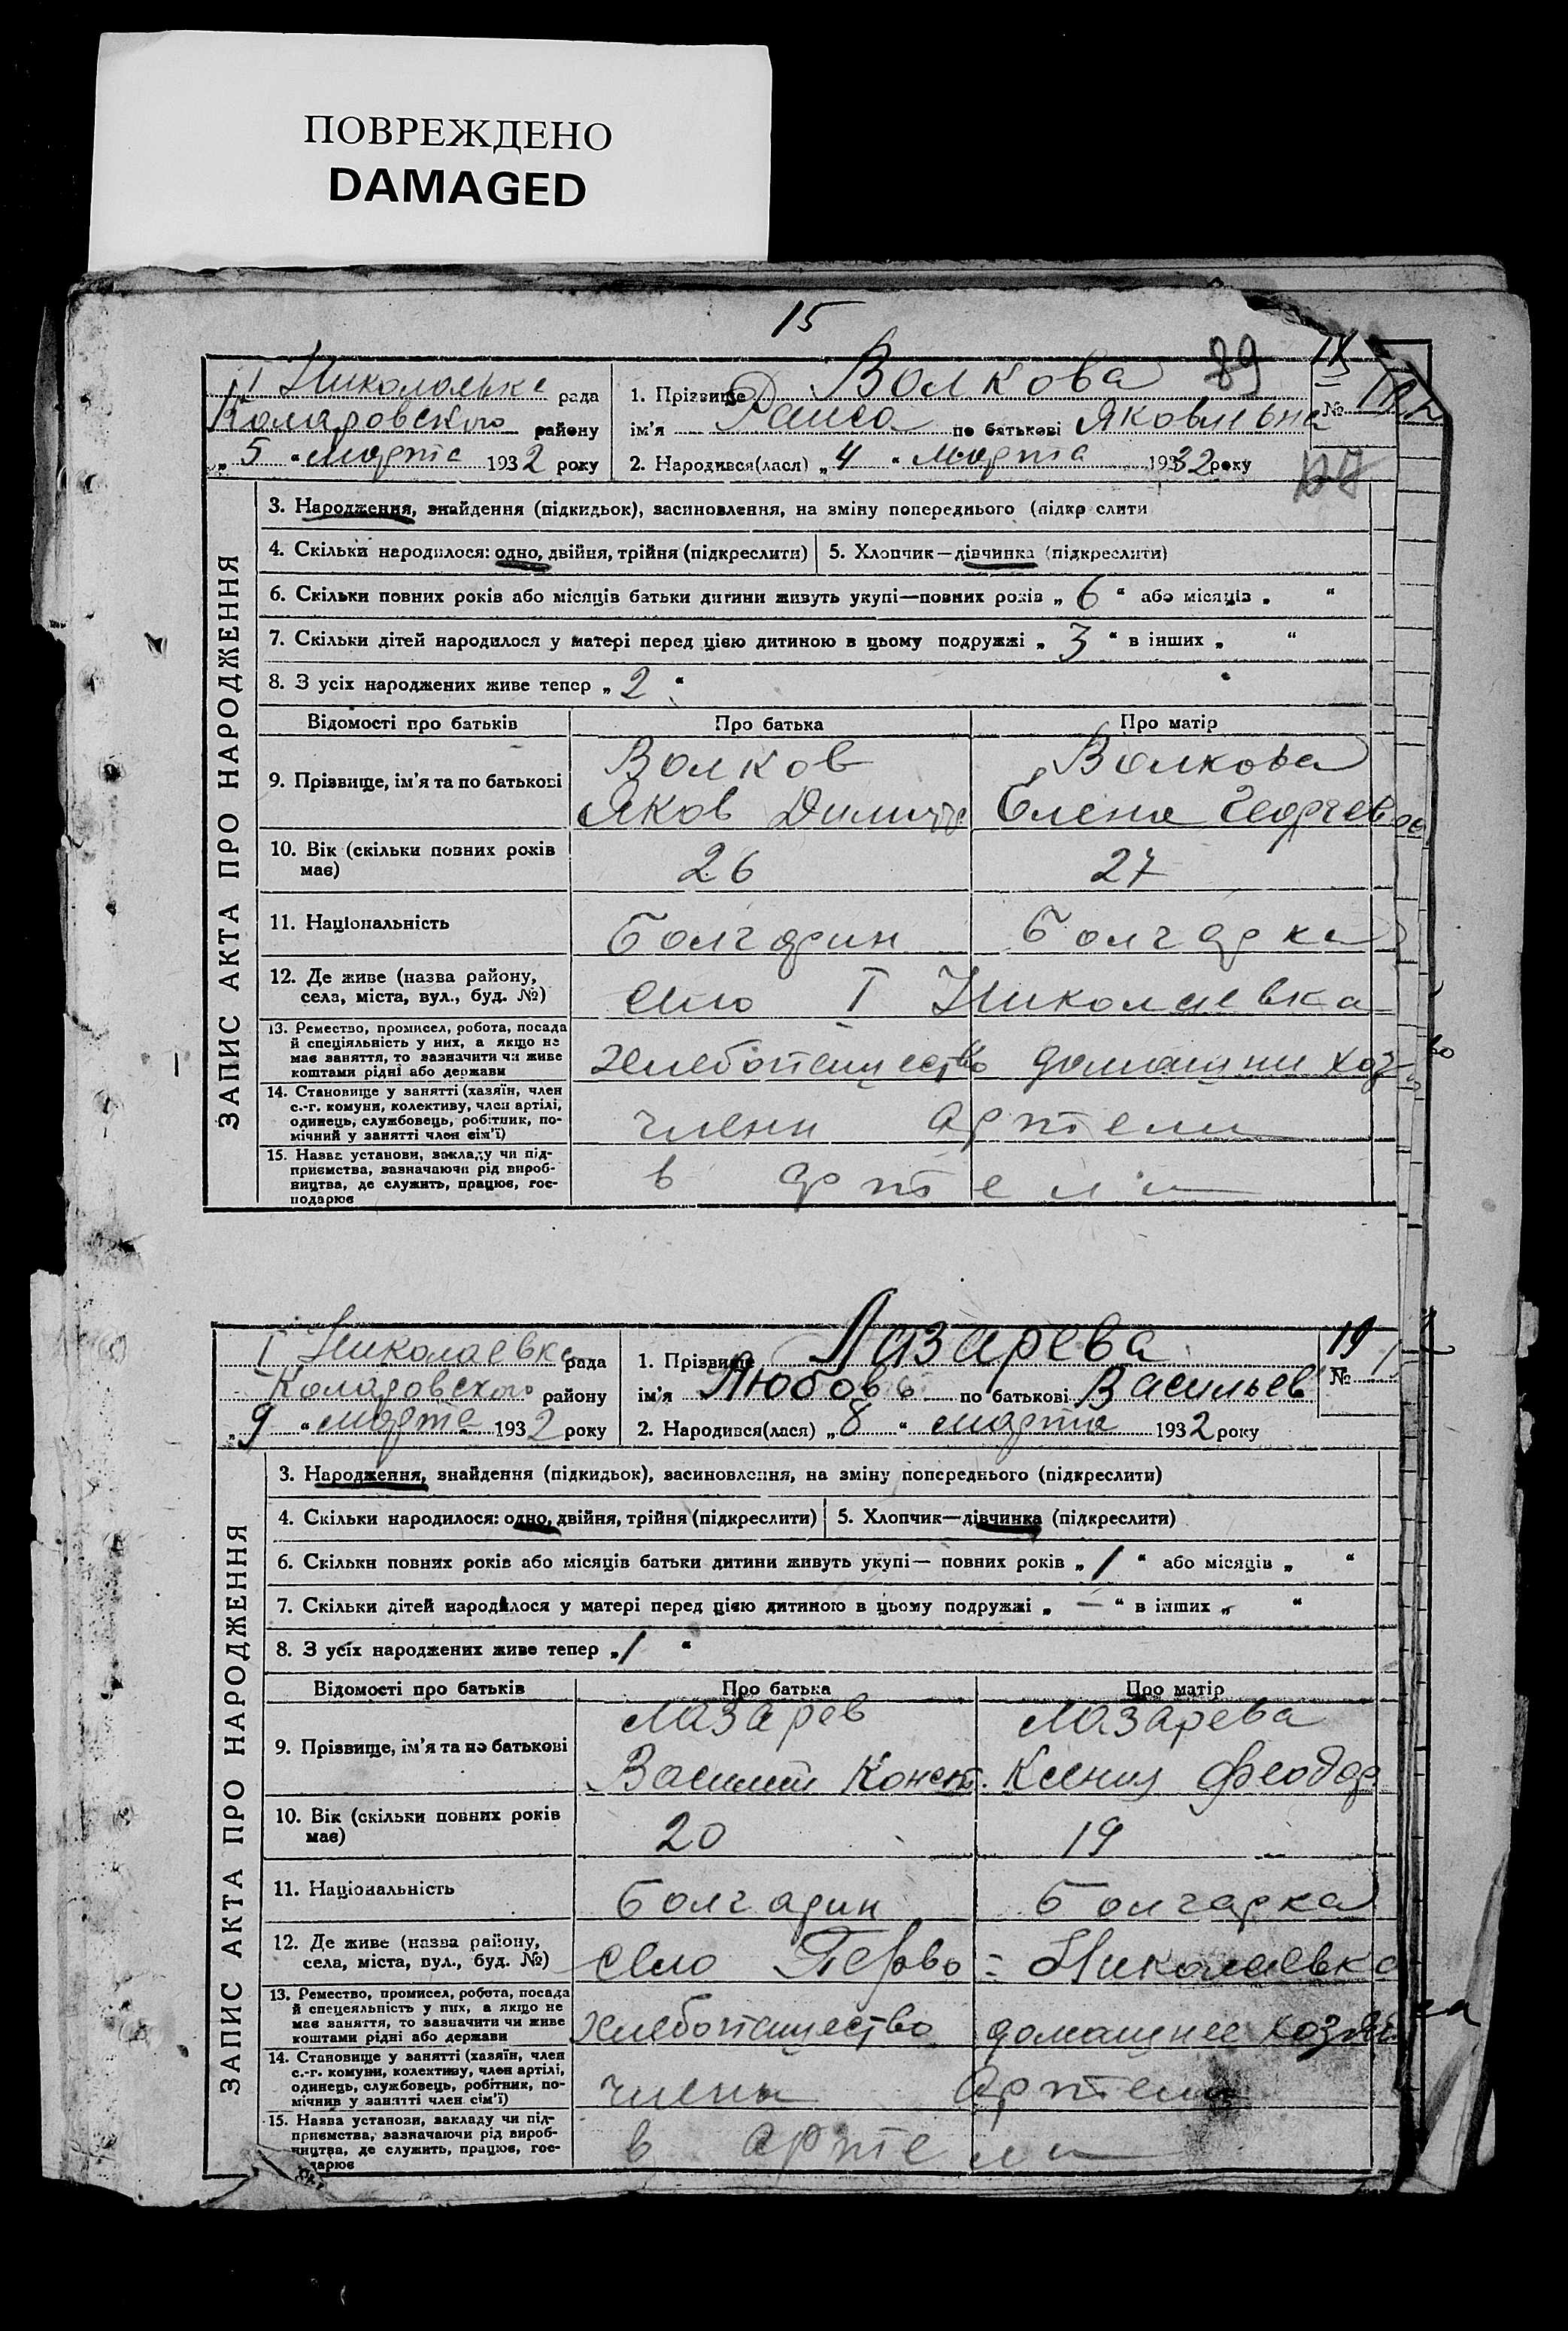 ПОВРЕЖДЕНО
DAMAGED
15
I Николаевка рада
Коларовского району
„ 5 “ марта 1932 року
1. Прізвище Волкова 89
ім'я Раиса по батькові Яковлевна
2. Народився(лася) „ 4 “ марта 1932 року
№
ЗАПИС АКТА ПРО НАРОДЖЕННЯ
3. Народження, знайдення (підкидьок), засиновлення, на зміну попереднього (підкр слити
4. Скільки народилося: одно, двійня, трійня (підкреслити) 5. Хлопчик—дівчинка (підкреслити)
6. Скільки повних років або місяців батьки дитини живуть укупі—повних років „ 6 “ або місяців „ “
7. Скільки дітей народилося у матері перед цією дитиною в цьому подружжі „ 3 “ в інших „ “
8. З усіх народжених живе тепер „ 2 “
Відомості про батьків Про батька Про матір
9. Прізвище, ім'я та по батькові
Волков
Яков Димитр
Волкова
Елена Георгиев
10. Вік (скільки повних років
має)
26 27
11. Національність
болгарин болгарка
12. Де живе (назва району,
села, міста, вул., буд. №)
село I Николаевка
13. Ремество, промисел, робота, посада
й спеціяльність у них, а якщо не
має заняття, то зазначити чи живе
коштами рідні або держави
хлебопашество домашни хоз
14. Становище у занятті (хазяїн, член
с.-г. комуни, колективу, член артілі,
одинець, службовець, робітник, по-
мічний у занятті член сім'ї)
члены артели
15. Назва установи, закладу чи під-
приємства, зазначаючи рід вироб-
ництва, де служить, працює, гос-
подарює
в артели
I Николаевка рада
Коларовского району
„ 9 “ марта 1932 року
1. Прізвище Лазарева
ім'я Любовь по батькові Васильев
2. Народився(лася) „ 8 “ марта 1932 року
19
№
ЗАПИС АКТА ПРО НАРОДЖЕННЯ
3. Народження, знайдення (підкидьок), засиновлення, на зміну попереднього (підкреслити)
4. Скільки народилося: одно, двійня, трійня (підкреслити) 5. Хлопчик—дівчинка (підкреслити)
6. Скільки повних років або місяців батьки дитини живуть укупі— повних років „ 1 “ або місяців „ “
7. Скільки дітей народилося у матері перед цією дитиною в цьому подружжі „ — “ в інших „ “
8. З усіх народжених живе тепер „ 1 “
Відомості про батьків Про батька Про матір
9. Прізвище, ім'я та по батькові
Лазарев
Василий Конст.
Лазарева
Ксения Феодор
10. Вік (скільки повних років
має)
20 19
11. Національність
болгарин болгарка
12. Де живе (назва району,
села, міста, вул., буд. №)
село Перво = Николаевка
13. Ремество, промисел, робота, посада
й спецеяльність у них, а якщо не
має заняття, то зазначити чи живе
коштами рідні або держави
хлебопашество домашнее хозяй
14. Становище у занятті (хазяїн, член
с.-г. комуни, колективу, член артілі,
одинець, службовець, робітник, по-
мічнив у занятті член сім'ї)
члены артели
15. Назва установи, закладу чи під-
приємства, зазначаючи рід вироб-
ництва, де служить, працює, гос-
дарює
в артели